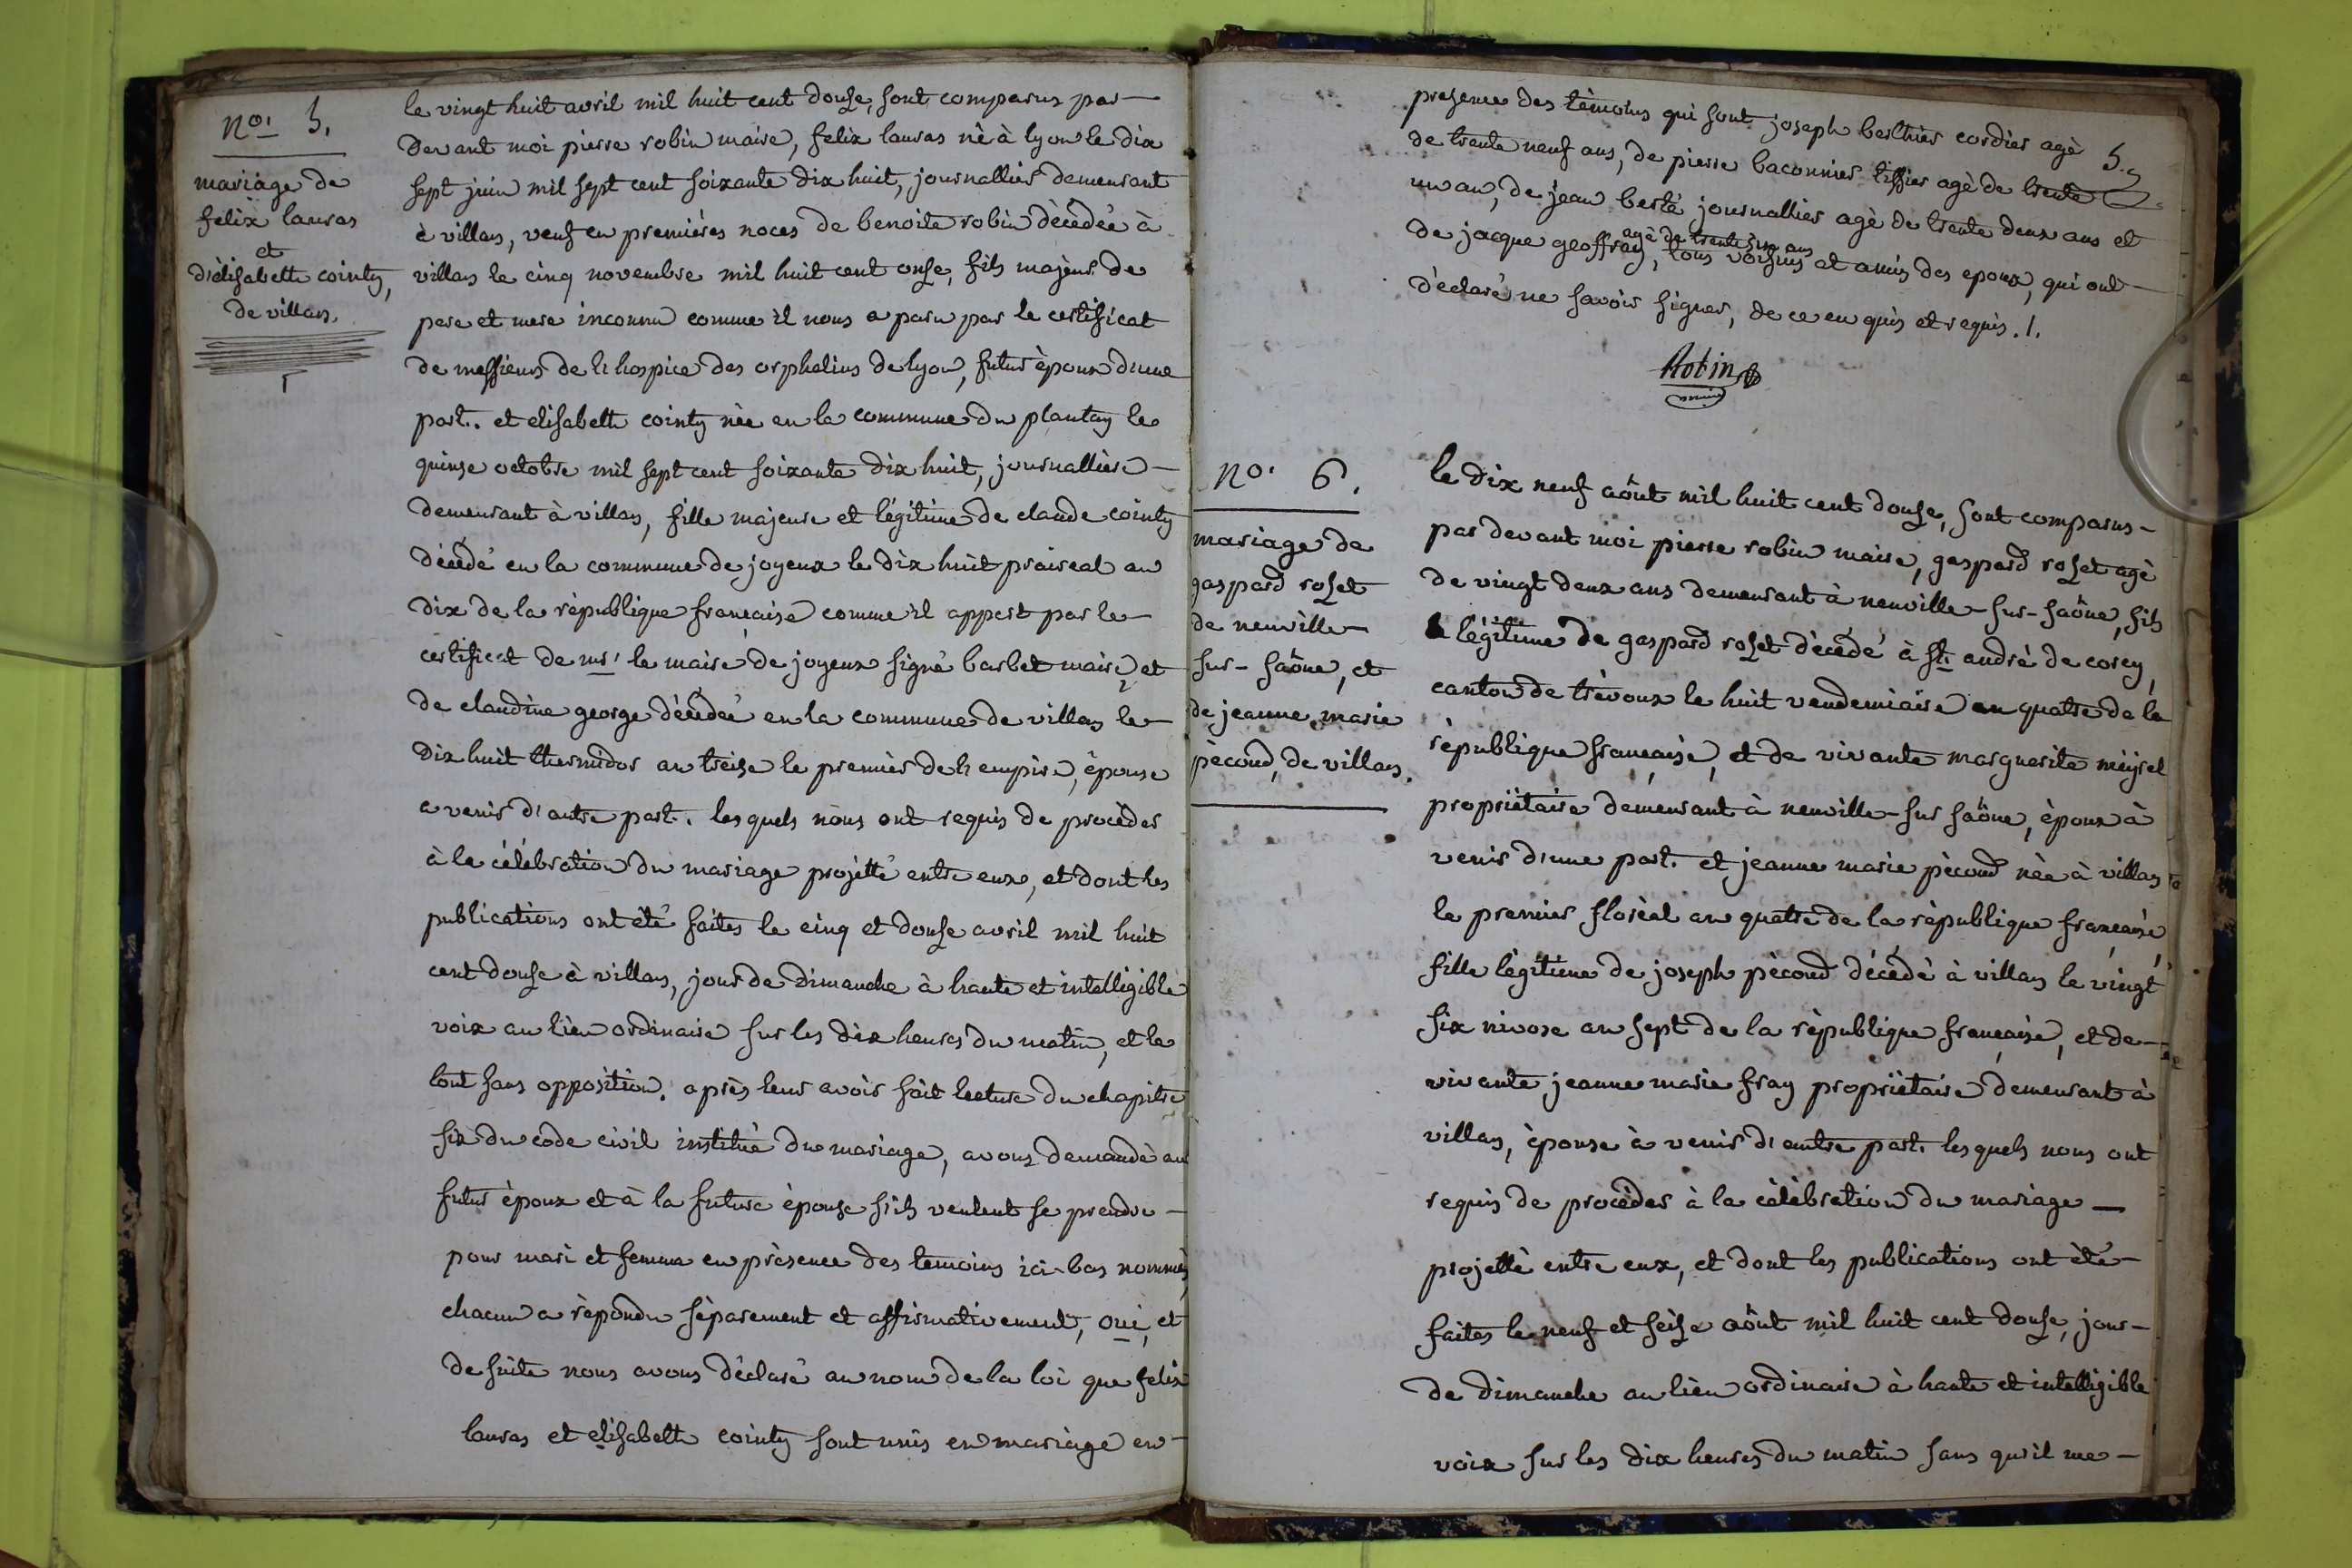 no. 5.
mariage de
felix lauras
et
d'élisabeth cointy,
de villars.
le vingt huit avril mil huit cent douse, sont comparus par-
devant moi pierre robin maire, felix lauras né à lyon le dix
sept juin mil sept cent soixante dix huit, journallier demeurant
à villars, veuf en premières noces de benoite robin décédée à
villars le cinq novembre mil huit cent onse, fils majeur de
pere et mere inconnu comme il nous a paru par le certificat
de messieurs de l'hospice des orphelins de lyon, futur époux d'une
part. et elisabeth cointy née en la commune du plantay le
quinse octobre mil sept cent soixante dix huit, journallière -
demeurant à villars, fille majeure et légitime de claude cointy
décédé en la commune de joyeux le dix huit prairéal an
dix de la république francaise comme il appert par le -
certificat de mr. le maire de joyeux signé barbet maire, et
de claudine george décédée en la commune de villars le -
dix huit thermidor an treise le premier de l'empire, épouse
a venir d'autre part. lesquels nous ont requis de procéder
à la célébration du mariage projetté entre eux, et dont les
publications ont été faites le cinq et douse avril mil huit
cent douse à villars, jour de dimanche à haute et intelligible
voix au lieu ordinaire sur les dix heures du matin, et le
tout sans opposition. après leur avoir fait lecture du chapitre
six du code civil institué du mariage, avons demandé au
futur époux et à la future épouse s'ils veulent se prendre -
pour mari et femme en présence des temoins ici-bas nommés,
chacun a répondu séparement et affirmativement, oui, et
de suite nous avons déclaré au nom de la loi que felix
lauras et elisabeth cointy sont unis en mariage en -
5.
presence des témoins qui sont joseph berthier cordier agé
de trente neuf ans, de pierre baconnier tissier agé de trente
un an, de jean berlé journallier agé de trente deux ans et
agé de trente six ans
de jacque geoffray, tous voisins et amis des epoux, qui ont -
déclaré ne savoir signer, de ce en quis et requis ./.
Robin
maire
no. 6.
mariage de
gaspard roset
de neuville -
sur-saône, et
de jeanne marie
pécoud, de villars.
le dix neuf aôut mil huit cent douse, sont comparus -
par devant moi pierre robin maire, gaspard roset agé
de vingt deux ans demeurant à neuville-sur-saône, fils
légitime de gaspard roset décédé à st. andré de corcy,
canton de trévoux le huit vendemiaire an quatre de la
république francaise, et de vivante marguerite méyrel
propriétaire demeurant à neuville-sur saône, époux à
venir d'une part. et jeanne marie pécoud née à villars
le premier floréal an quatre de la république francaise,
fille légitime de joseph pécoud décédé à villars le vingt
six nivose an sept de la république francaise, et de -
vivante jeanne marie fray propriétaire demeurant à
villars, épouse à venir d'autre part. lesquels nous ont
requis de procéder à la célébration du mariage -
projetté entre eux, et dont les publications ont été -
faites le neuf et seise aôut mil huit cent douse, jour -
de dimanche au lieu ordinaire à haute et intelligible
voix sur les dix heures du matin sans qu'il me -